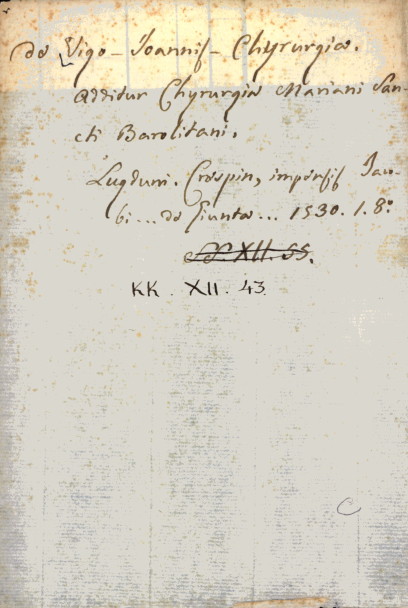 de Vigo - Joannis - Chyrurgia.
additur Chyrurgia Mariani San-
cti Barolitani.
Lugduni. Crespin, impensis Jaco-
bi ... de Giunta ... 1530. 1. 8.º
XII. 55.
KK. XII. 43
C